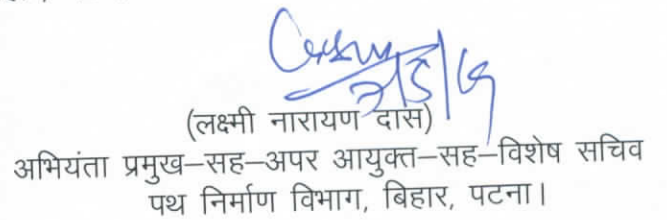 (लक्ष्मी नारायण दास)
अभियंता प्रमुख–सह–अपर आयुक्त–सह–विशेष सचिव
पथ निर्माण विभाग, बिहार, पटना।